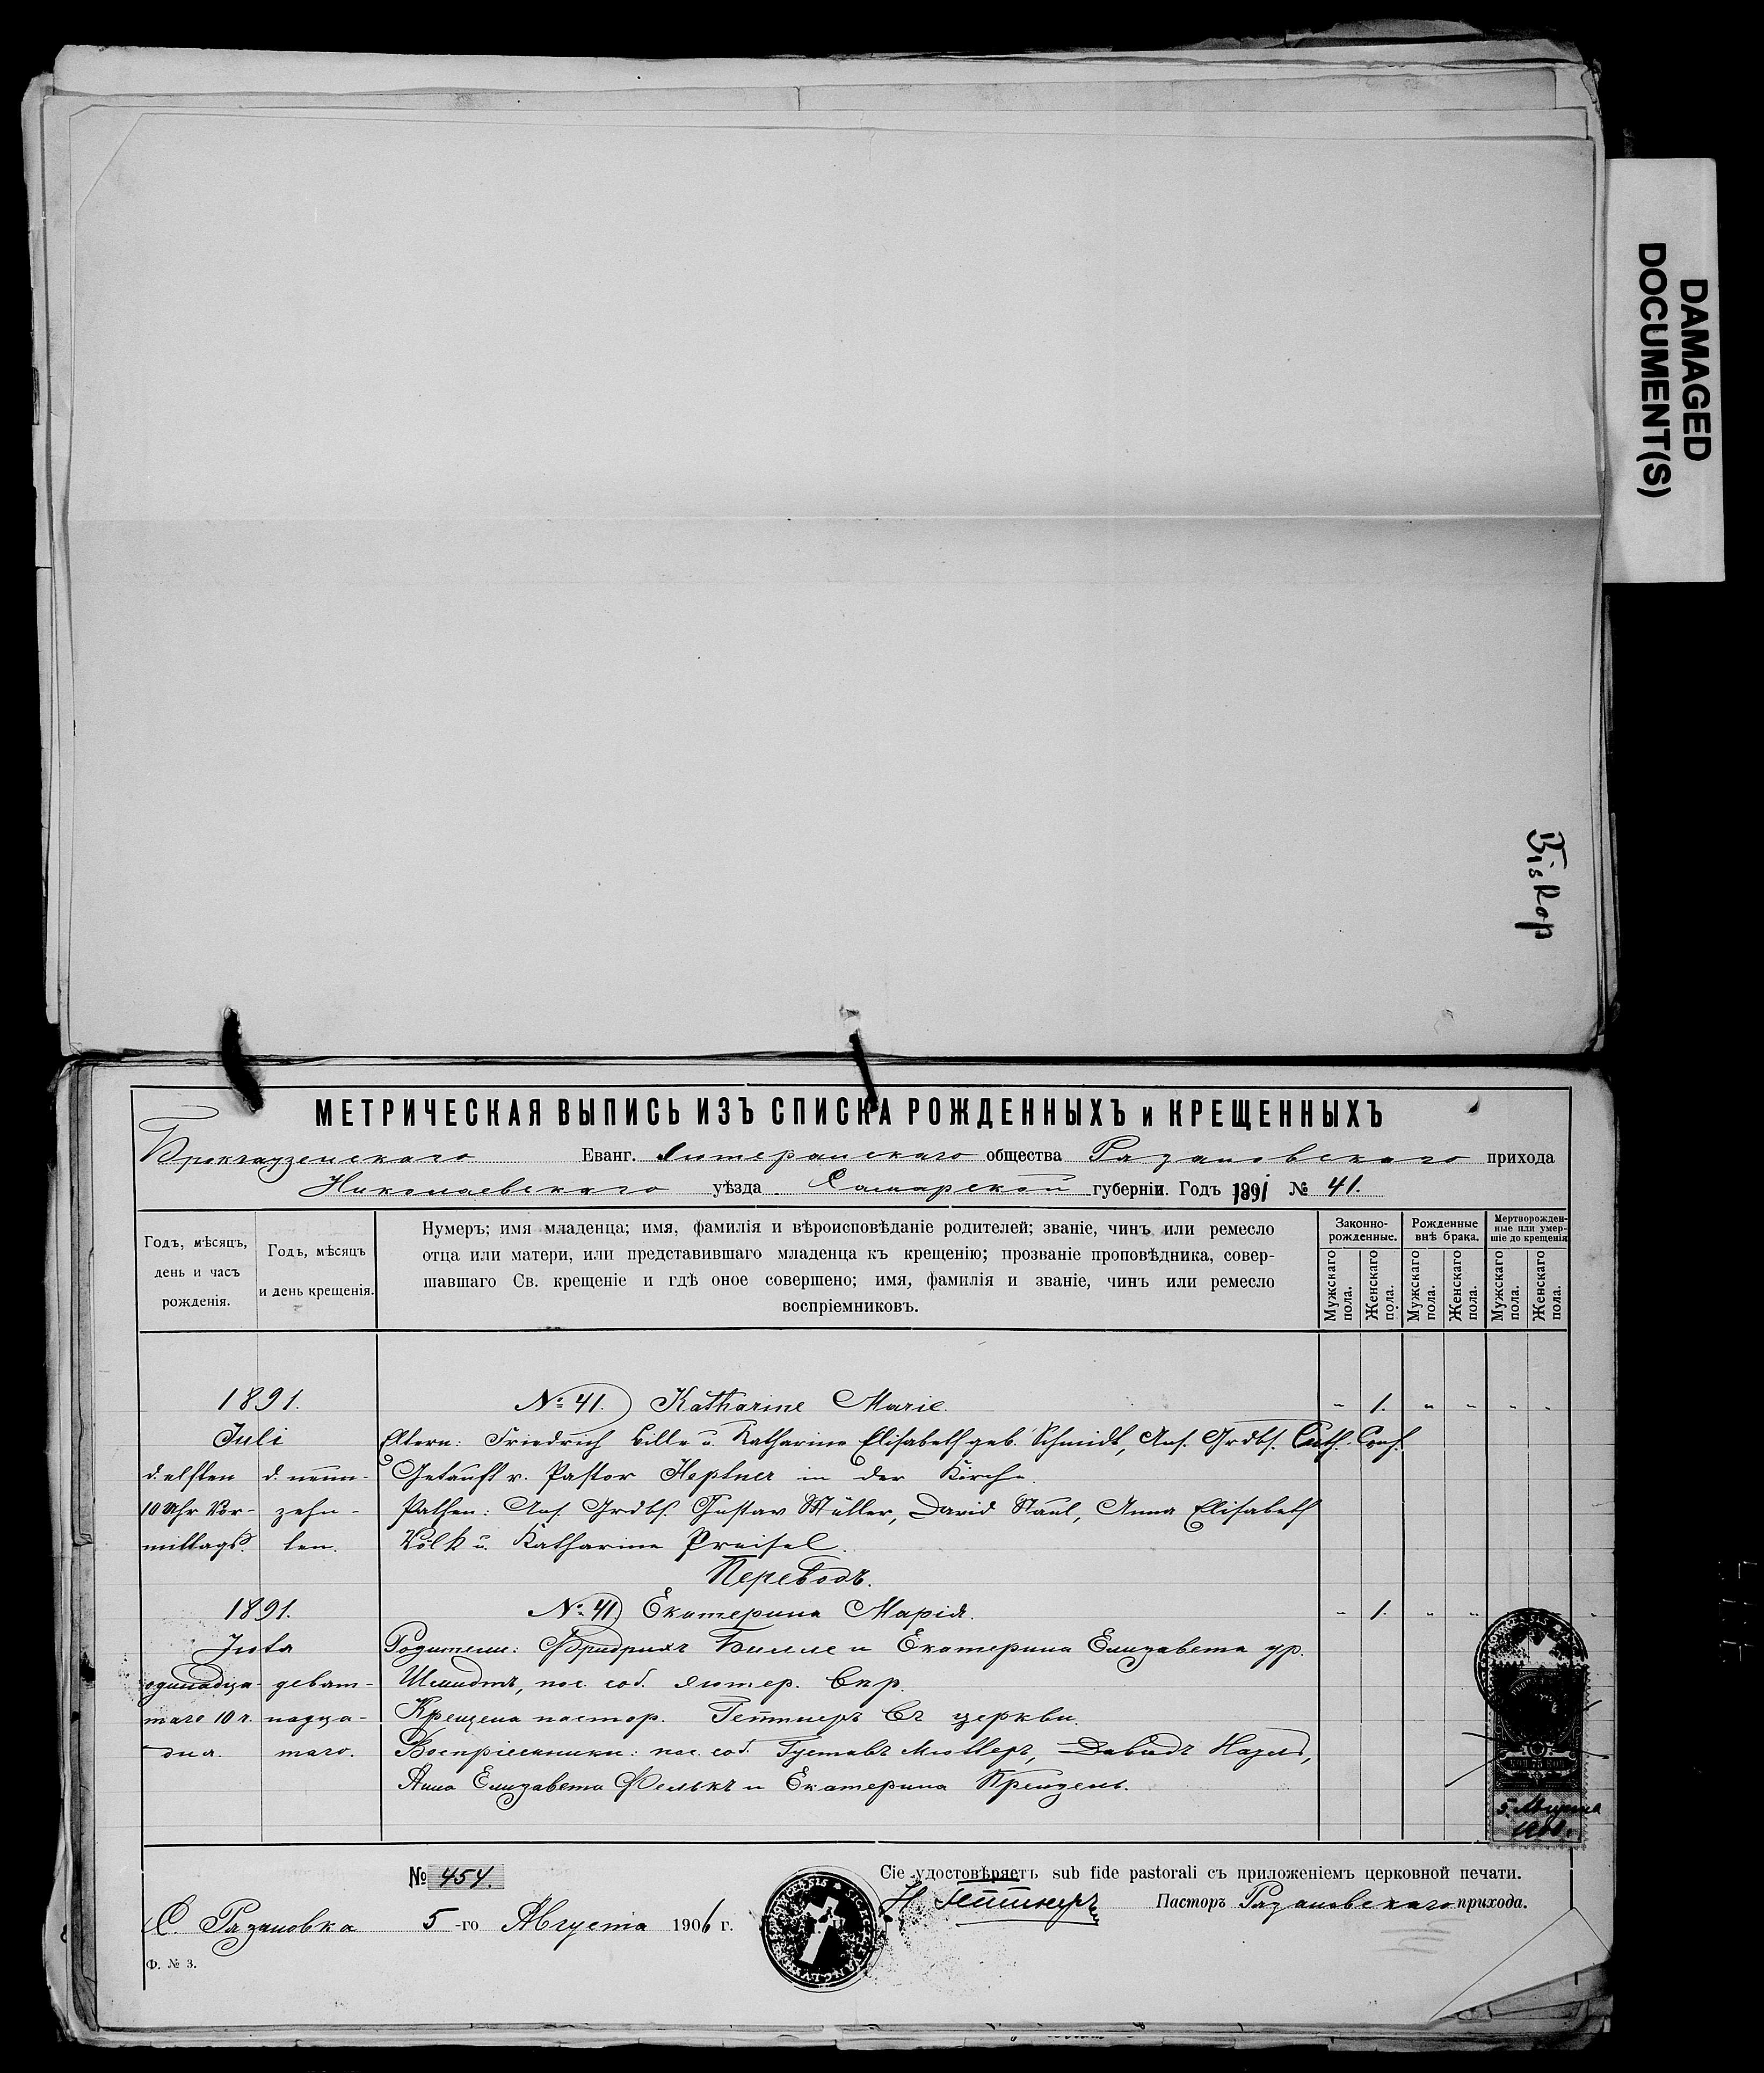 DAMAGED
DOCUMENT(S)
Biskop
МЕТРИЧЕСКАЯ ВЫПИСЬ ИЗЪ СПИСКА РОЖДЕННЫХЪ и КРЕЩЕННЫХЪ
Брокгаузенскаго Еванг. Лютеранскаго общества Разановскаго прихода
Николаевскаго уѣзда Самарской губерніи. Годъ 1891 № 41.
Годъ, мѣсяцъ, день и часъ рожденія.
Годъ, мѣсяцъ и день крещенія.
Нумеръ; имя младенца; имя, фамилія и вѣроисповѣданіе родителей; званіе, чинъ или ремесло
отца или матери, или представившаго младенца къ крещенію; прозваніе проповѣдника, совер-
шавшаго Св. крещеніе и гдѣ оное совершено; имя, фамилія и званіе, чинъ или ремесло
воспріемниковъ.
Законно-рожденные.
Рожденные внѣ брака.
Мертворожден-ные или умер-шіе до крещенія
Мужскаго пола.
Женскаго пола.
Мужскаго пола.
Женскаго пола.
Мужскаго пола.
Женскаго пола.
1891. № 41.) Katharine Marie. " 1. " " " "
Juli Eltern: Friedrich Bille u. Katharine Elisabeth geb. Schmidt, Ans. Grdbs. Luth. Conf.
d. elften d. neun- Getauft v. Pastor Heptner in der Kirche.
10 Uhr Vor- zehn- Pathen: Ans. Grdbs. Gustav Müller, David Naul, Anna Elisabeth
mittags. ten. Völk u. Katharine Preisel.
Переводъ.
1891. № 41) Екатерина Марія. " 1. " "
Іюля Родители: Фридрихъ Билле и Екатерина Елизавета ур.
одинадца- девят- Шмидтъ, пос. соб. лютер. Єпр.
таго 10 ч. надца- Крещена пастор. Гептнеръ въ церкви.
дня. таго. Воспріемники: пос. соб. Густавъ Мюллеръ, Давидъ Науль,
Анна Елизавета Фелькъ и Екатерина Прейзель.
5. Августа
1906.
№ 454.
Сіе удостовѣряетъ sub fide pastorali съ приложеніемъ церковной печати.
Н Гептнеръ Пасторъ Разановскаго прихода.
С. Разановка 5-го Августа 1906 г.
Ф. № 3.